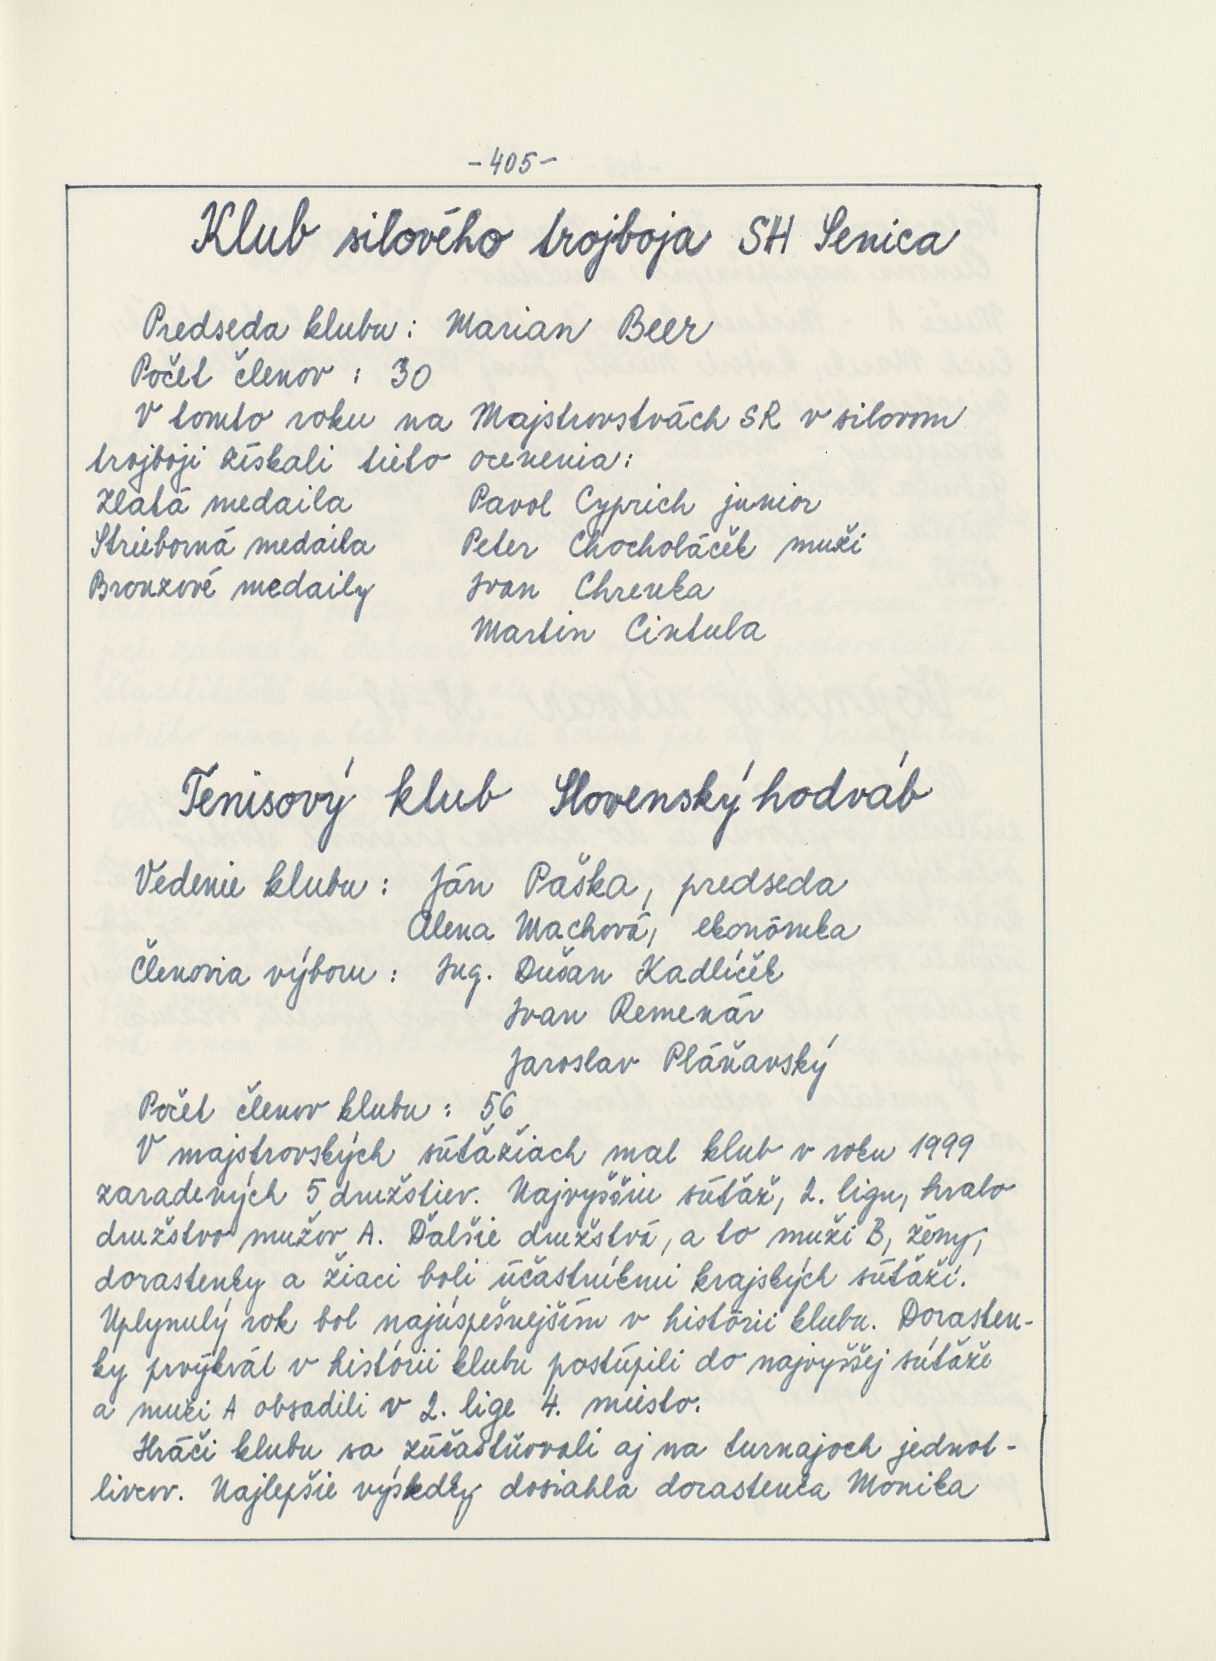 -405-
Klub silového trojboja SH Senica
Predseda klubu: Marian Beer
Počet členov: 30
V tomto roku na Majstrovstvách SR v silovom
trojboji získali tieto ocenenia:
Zlatá medaila Pavol Cyprich junior
Strieborná medaila Peter Chocholáček muži
Bronzové medaily Ivan Chrenka
Martin Cintula
Tenisový klub Slovenský hodváb
Vedenie klubu: Ján Paška, predseda
Alena Machová, ekonómka
Členovia výboru: Ing. Dušan Kadlíček
Ivan Remenár
Jaroslav Pláňavský
Počet členov klubu: 56
V majstrovských súťažiach mal klub v roku 1999
zaradených 5 družstiev. Najvyššiu súťaž, 2. ligu, hralo
družstvo mužov A. Ďalšie družstvá, a to muži B, ženy,
dorastenky a žiaci boli účastníkmi krajských súťaží.
Uplynulý rok bol najúspešnejším v histórii klubu. Dorasten-
ky prvýkrát v histórii klubu postúpili do najvyššej súťaže
a muži A obsadili v 2. lige 4. miesto.
Hráči klubu sa zúčastňovali aj na turnajoch jednot-
livcov. Najlepšie výsledky dosiahla dorastenka Monika